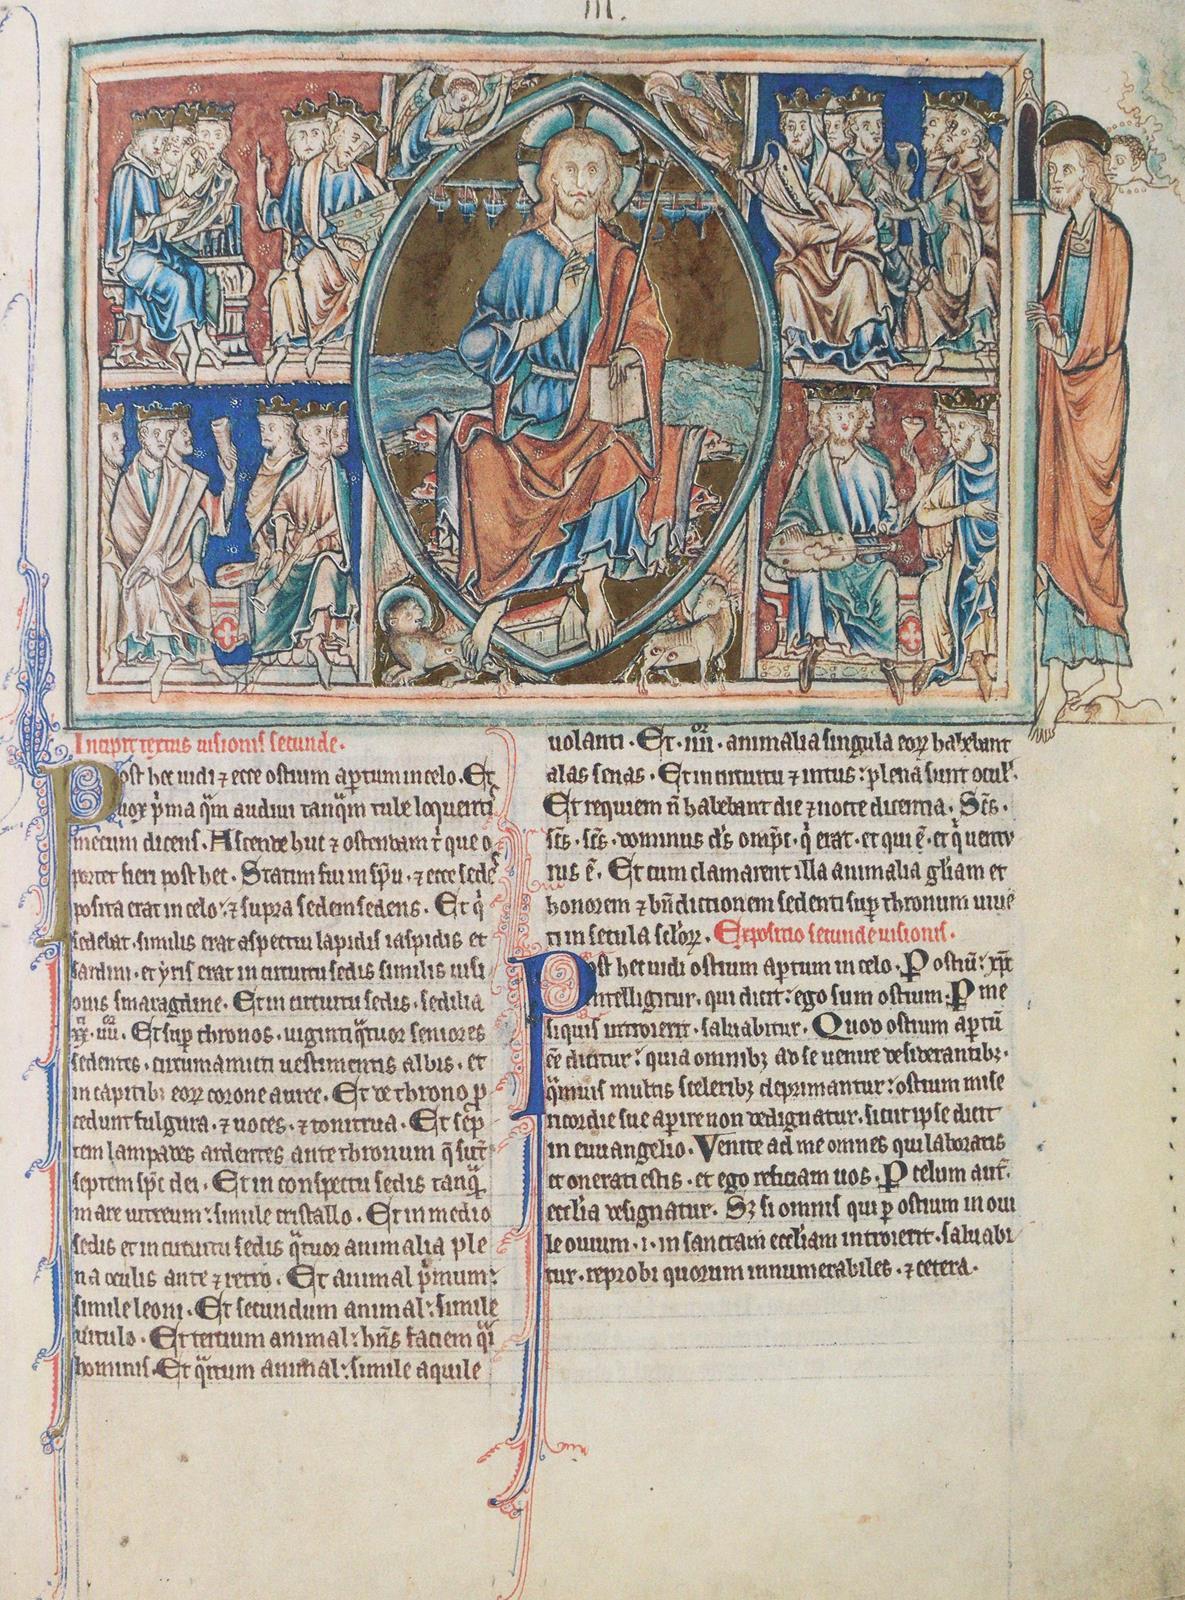 III.
Incipit textus uisionis secunde.
Post hec uidi ⁊ ecce ostium ap̱tum in celo. Et
uox p̍ma q̄m audiui tanq̄m tube loquentis
mecum dicens. Ascende huc ⁊ ostendam t̍ que o
portet fieri post hec. Statim fui in sp̄u. ⁊ ecce sedes
posita erat in celo: ⁊ supra sedem sedens. Et q̍
sedebat. similis erat aspectu lapidis iaspidis et
sardini. et yris erat in circuitu sedis similis uisi
onis smaragdine. Et in circuitu sedis. sedilia
xx.iiii. Et sup̱ thronos. uiginti q̄tuor seniores
sedentes. circumamicti uestimentis albis. et
in capitibꝫ eoꝝ corone auree. Et de throno p̱
cedunt fulgura. ⁊ uoces. ⁊ tonitrua. Et sep̄
tem lampades ardentes ante thronum q̄ sūt
septem sp̄c dei. Et in conspectu sedis tanq̄
mare uitreum: simile cristallo. Et in medio
sedis et in circuitu sedis q̄tuor animalia ple
na oculis ante ⁊ retro. Et animal p̍mum:
simile leoni. Et secundum animal: simile
uitulo. Et tertium animal: hn̄s faciem q̄i
hominis. Et q̄rtum animal: simile aquile
uolanti. Et .iiii. animalia singula eoꝝ habebant
alas senas. Et in circuitu ⁊ intus: plena sunt ocul'.
Et requiem n̄ habebant die ⁊ nocte dicentia. Sc̄s.
sc̄s. sc̄s. dominus d̄s omp̄s. q̍ erat. et qui ē. et q̍ uentu
rus ē. Et cum clamarent illa animalia gl̄iam et
honorem ⁊ bn̄dictionem sedenti sup̱ thronum uiuē
ti in secula sc̄loꝝ. Expositio secunde uisionis.
Post hec uidi ostium ap̱tum in celo. P ostiū: xp̄c
intelligitur. qui dicit: ego sum ostium. P me
siquis introierit. saluabitur. Quod ostium ap̱tū
ēē dicitur: quia omnibꝫ ad se uenire desiderantibꝫ.
q̄muis multis sceleribꝫ deprimantur: ostium mise
ricordie sue ap̱ire non dedignatur. sicut ipse dicit
in euuangelio. Venite ad me omnes qui laboratis
et onerati estis. et ego reficiam uos. P celum aut̄.
eccl̄ia designatur. Sꝫ si omnis qui p̱ ostium in oui
le ouium .i. in sanctam eccl̄iam introierit. saluabi
tur. reprobi quorum innumerabiles. ⁊ cetera.